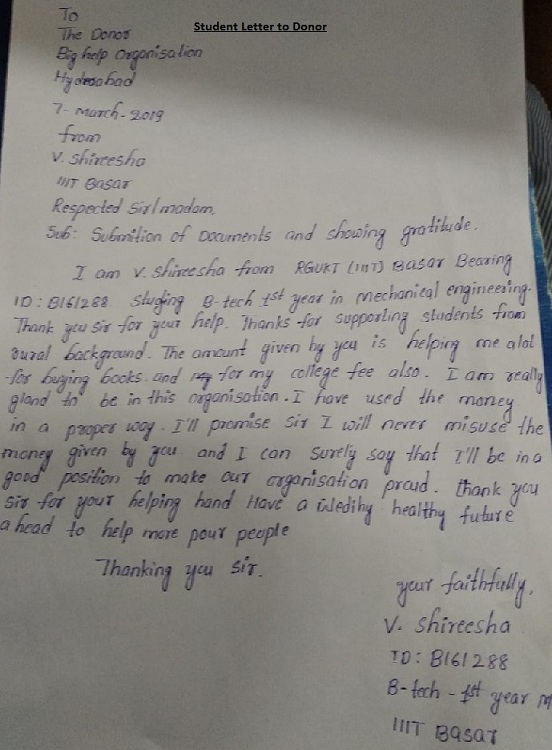 Student Letter to Donor
To
The Donor
Big help Organisation
Hyderabad
7- march-2019
from
V. Shireesha
IIIT Basar
Respected Sir/madam,
Sub: Submition of Documents and showing gratitude.
I am V. Shireesha from RGUKT (IIIT) Basar Bearing
ID: B161288 Studing B-tech 1st year in mechanical engineering.
Thank you sir for your help. Thanks for supporting students from
rural background. The amount given by you is helping me alot
for buying books. and for my college fee also. I am really
gland to be in this organisation. I have used the money
in a proper way. I'll promise sir I will never misuse the
money given by you and I can Surely say that I'll be in a
good position to make our organisation proud. Thank you
sir for your helping hand Have a healthy future
a head to help more pour people
Thanking you sir.
your faithfully,
V. Shireesha
ID: B161288
B-tech - 1st year
IIIT Basar